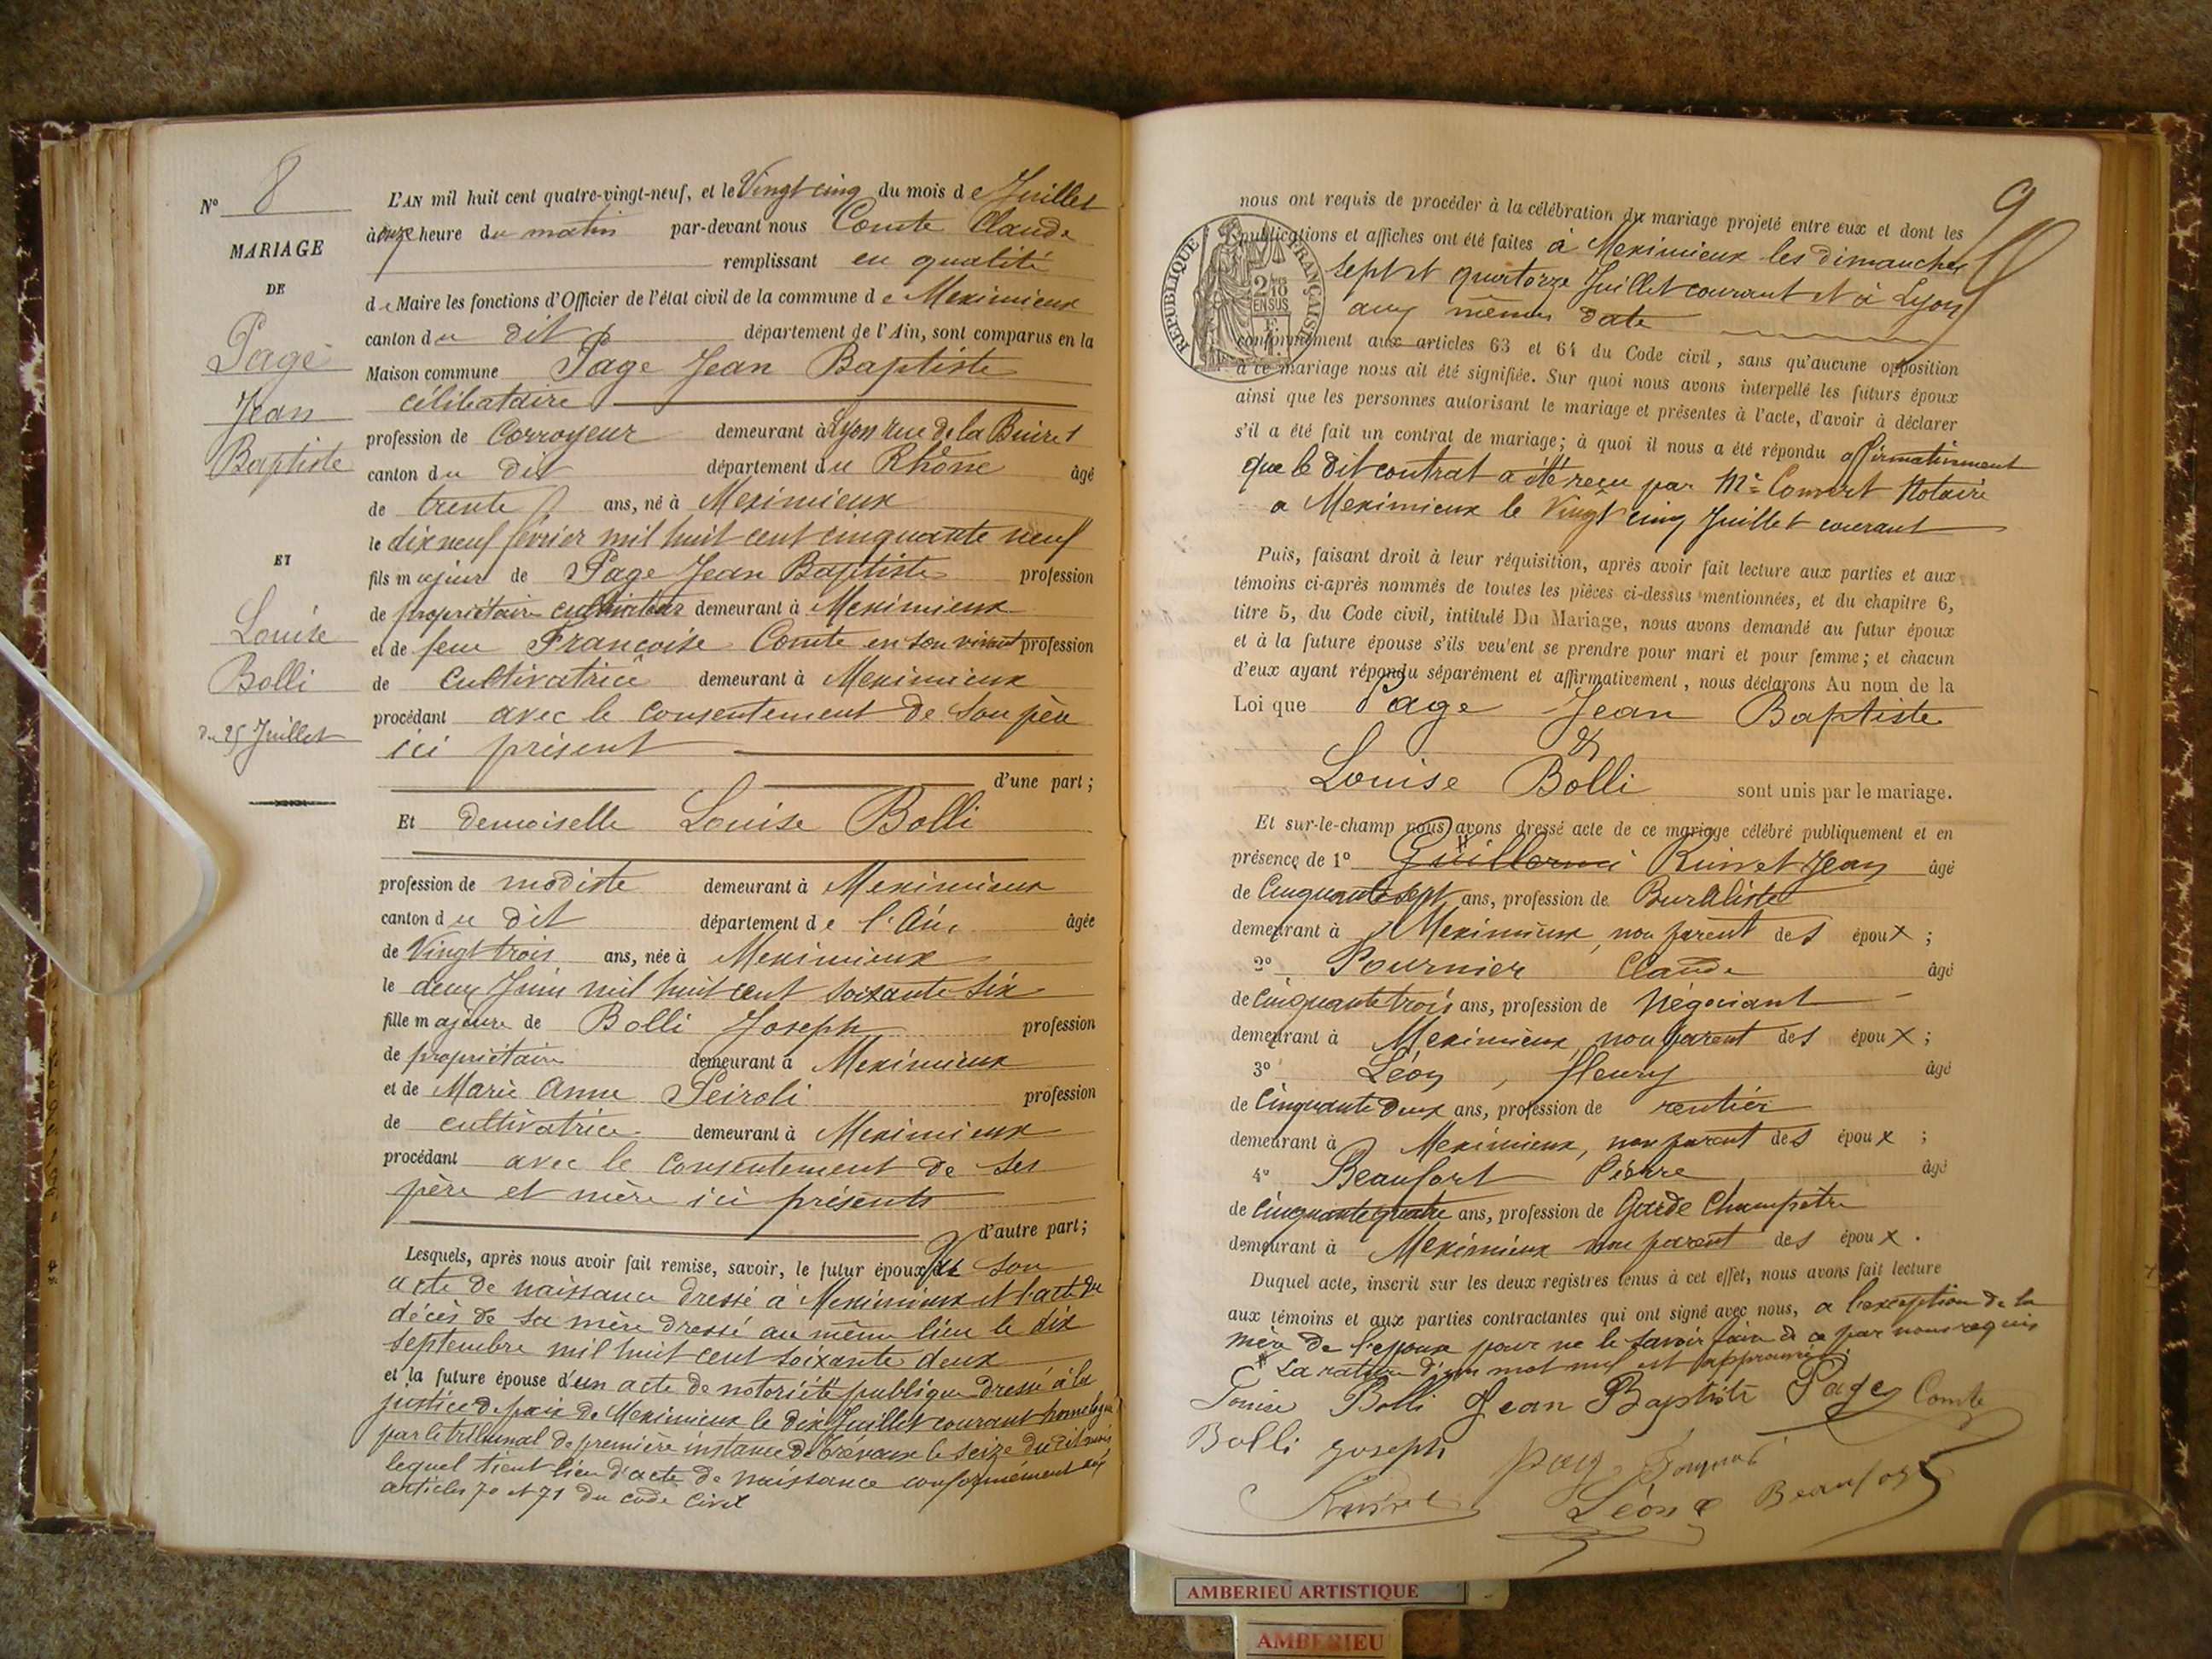 N° 8
MARIAGE
DE
Page
Jean
Baptiste
ET
Louise
Bolli
du 25 Juillet
L'AN mil huit cent quatre-vingt-neuf, et le Vingt cinq du mois de Juillet
à onze heure du matin par-devant nous Comte Claude
remplissant en qualité
de Maire les fonctions d'Officier de l'état civil de la commune de Meximieux
canton du dit département de l'Ain, sont comparus en la
Maison commune Page Jean Baptiste
célibataire
profession de Corroyeur demeurant à Lyon rue de la Buire 1
canton du dit département du Rhône âgé
de trente ans, né à Meximieux
le dix neuf février mil huit cent cinquante neuf
fils majeur de Page Jean Baptiste profession
de propriétaire cultivateur demeurant à Meximieux
et de feue Francoise Comte en son vivant profession
de Cultivatrice demeurant à Meximieux
procédant avec le consentement de son père
ici présent
d'une part;
Et demoiselle Louise Bolli
profession de modiste demeurant à Meximieux
canton du dit département de l'Ain âgée
de Vingt trois ans, née à Meximieux
le deux Juin mil huit cent soixante six
fille majeure de Bolli Joseph profession
de propriétaire demeurant à Meximieux
et de Marie Anne Peiroli profession
de cultivatrice demeurant à Meximieux
procédant avec le consentement de ses
père et mère ici présents
d'autre part;
Lesquels, après nous avoir fait remise, savoir, le futur époux de son
acte de naissance dressé à Meximieux et l'acte du
décès de sa mère dressé au même lieu le dix
septembre mil huit cent soixante deux
et la future épouse d'un acte de notoriété publique dressé à la
justice de paix de Meximieux le dix Juillet courant homologué
par le tribunal de première instance de Trévoux le seize du dit mois
lequel tient lieu d'acte de naissance conformément aux
articles 70 et 71 du code Civil
9
nous ont requis de procéder à la célébration du mariage projeté entre eux et dont les
publications et affiches ont été faites à Meximieux les dimanches
sept et quatorze Juillet courant et à Lyon
aux mêmes date
RÉPUBLIQUE FRANÇAISE
conformément aux articles 63 et 64 du Code civil, sans qu'aucune opposition
à ce mariage nous ait été signifiée. Sur quoi nous avons interpellé les futurs époux
ainsi que les personnes autorisant le mariage et présentes à l'acte, d'avoir à déclarer
s'il a été fait un contrat de mariage; à quoi il nous a été répondu affirmativement
que le dit contrat a été reçu par Me Convert Notaire
a Meximieux le Vingt cinq Juillet courant
Puis, faisant droit à leur réquisition, après avoir fait lecture aux parties et aux
témoins ci-après nommés de toutes les pièces ci-dessus mentionnées, et du chapitre 6,
titre 5, du Code civil, intitulé Du Mariage, nous avons demandé au futur époux
et à la future épouse s'ils veulent se prendre pour mari et pour femme; et chacun
d'eux ayant répondu séparément et affirmativement, nous déclarons Au nom de la
Loi que Page Jean Baptiste
&
Louise Bolli sont unis par le mariage.
Et sur-le-champ nous avons dressé acte de ce mariage célébré publiquement et en
présence de 1° Guillermi Ruinet Jean âgé
de Cinquante sept ans, profession de Buraliste
demeurant à Meximieux, non parent des époux;
2° Fournier Claude âgé
de cinquante trois ans, profession de Négociant
demeurant à Meximieux, non parent des époux;
3° Léon, fleury âgé
de Cinquante deux ans, profession de rentier
demeurant à Meximieux, non parent des époux;
4° Beaufort Pierre âgé
de Cinquante quatre ans, profession de Garde Champêtre
demeurant à Meximieux non parent des époux.
Duquel acte, inscrit sur les deux registres tenus à cet effet, nous avons fait lecture
aux témoins et aux parties contractantes qui ont signé avec nous, a l'exception de la
mère de l'épouse pour ne le savoir faire de ce par nous requis
* La rature d'un mot nul est approuvé
Louise Bolli Jean Baptiste Page Comte
Bolli Joseph Page
Ruinet Léon Beaufort
AMBERIEU ARTISTIQUE
AMBERIEU